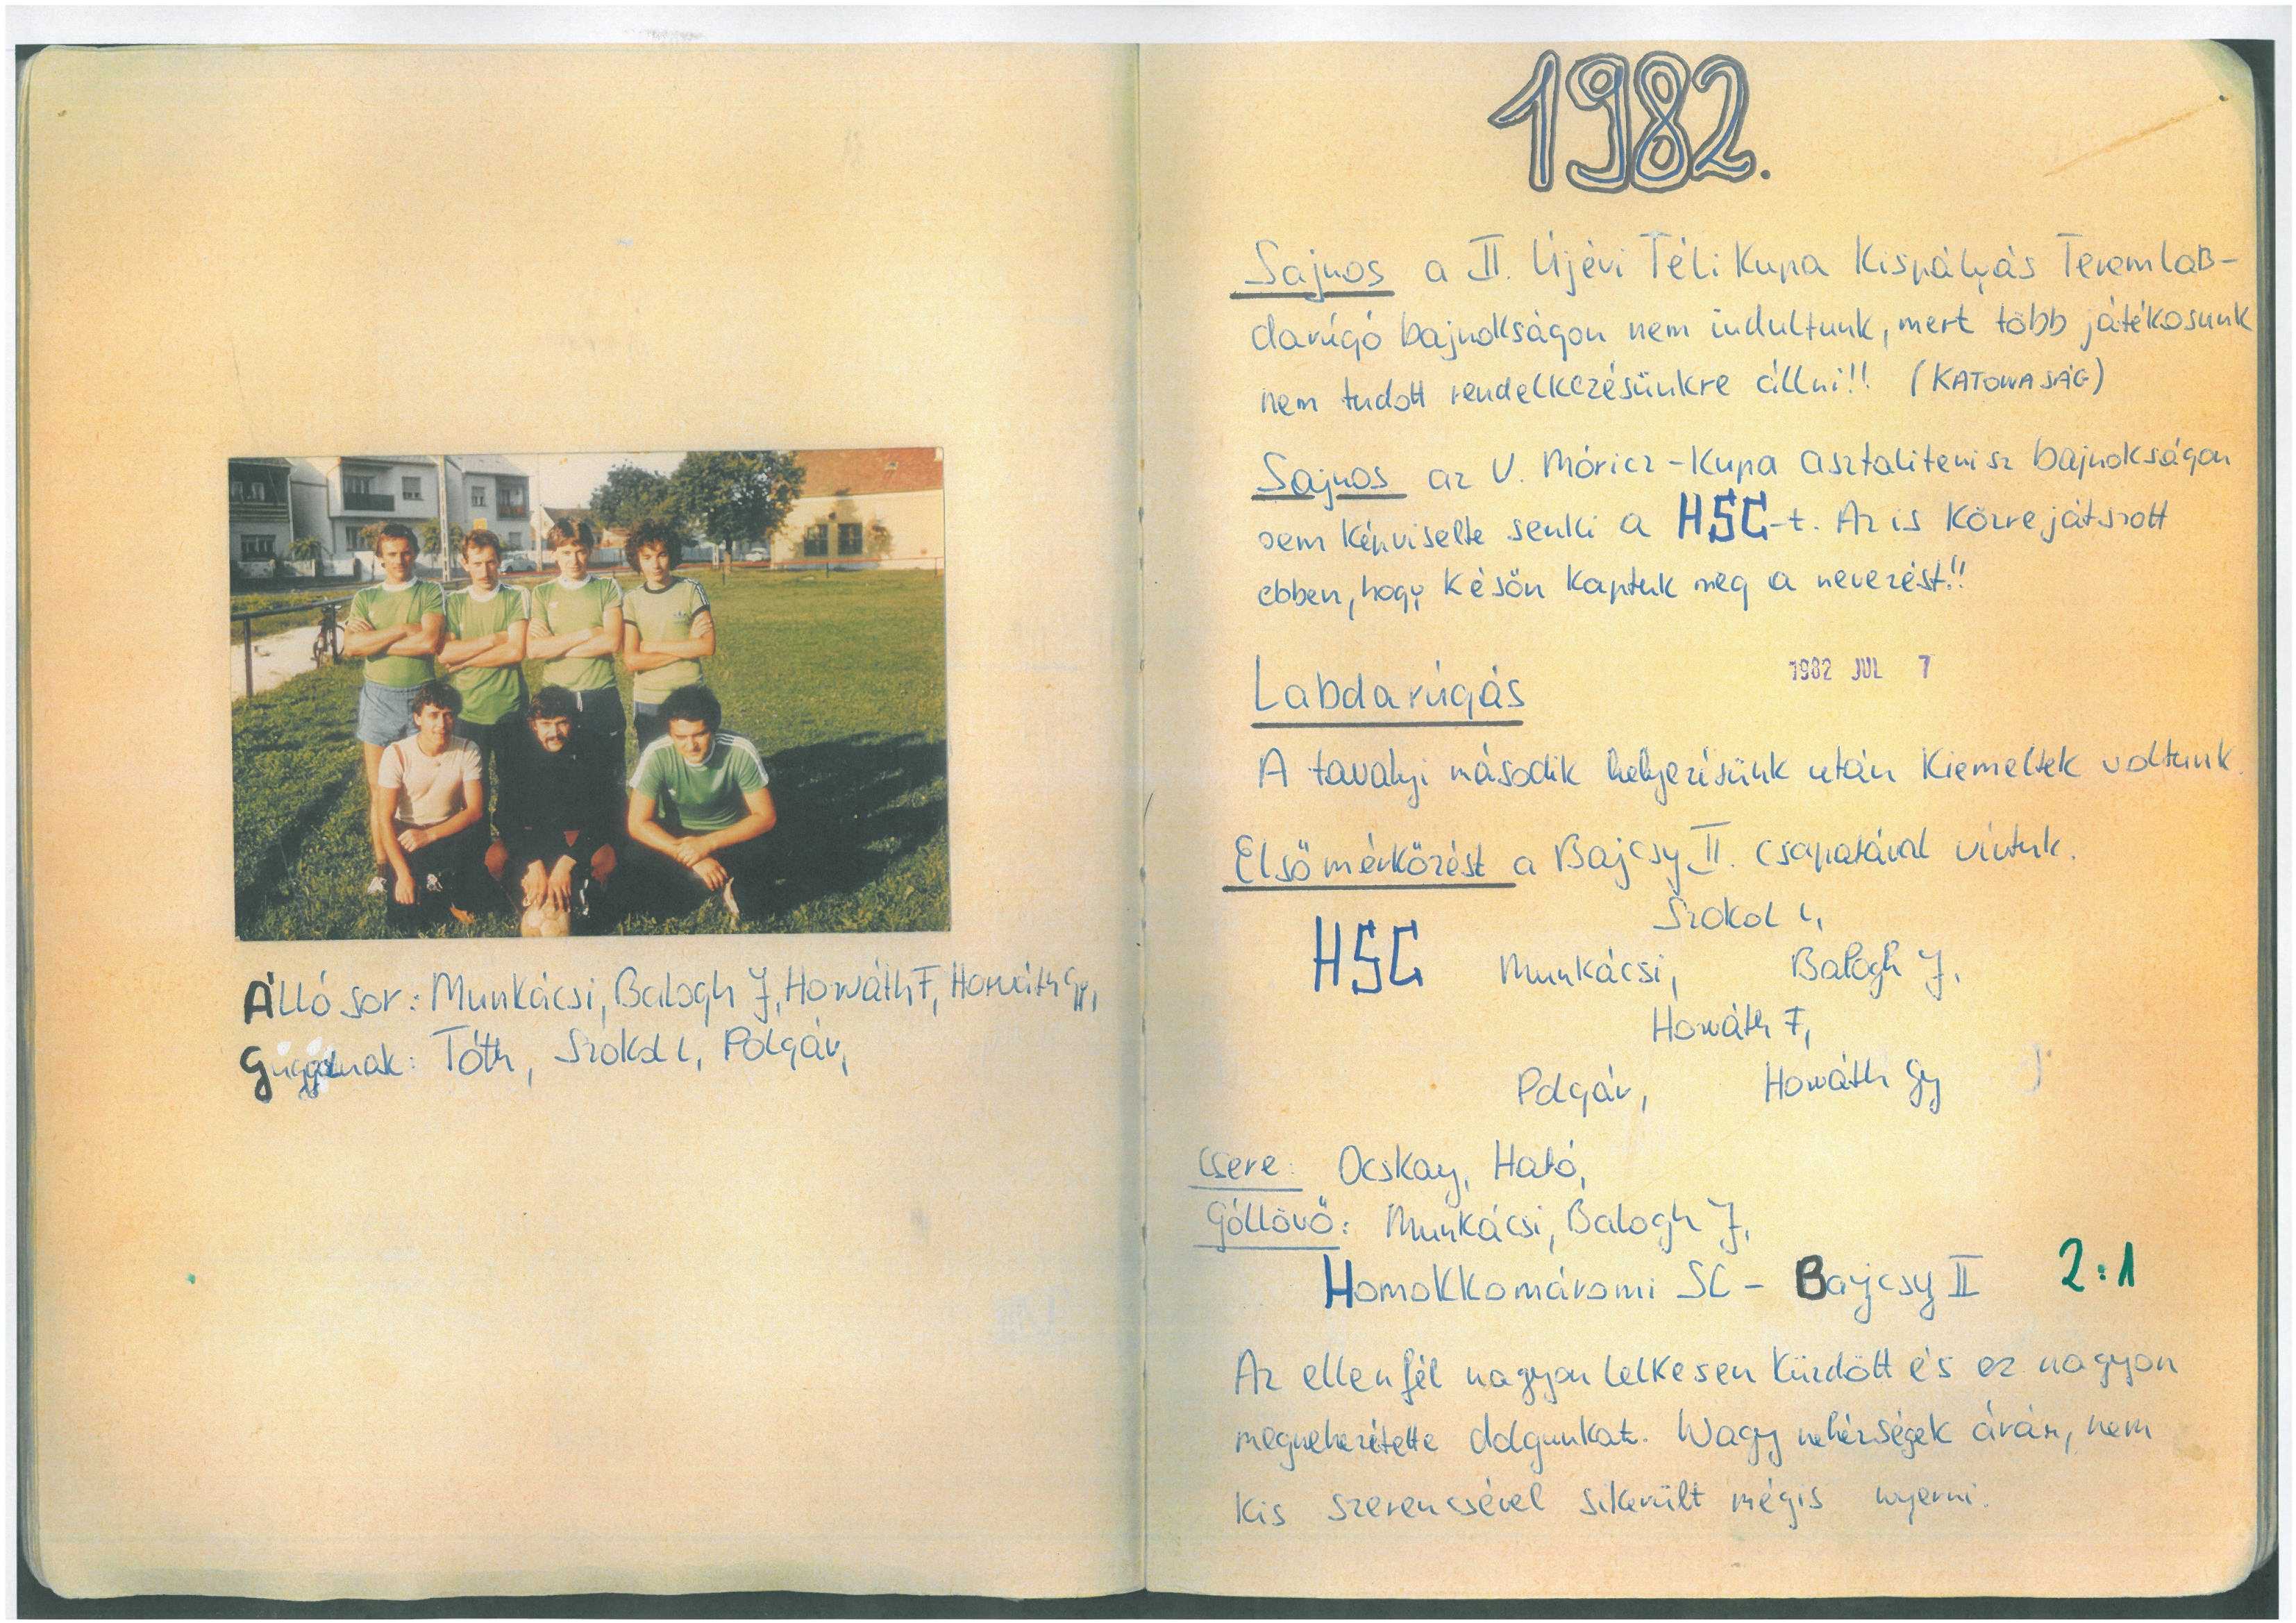 Álló sor: Munkácsi, Balogh J, Horváth F, Horváth Gy,
Guggolnak: Tóth, Szokol L, Polgár,
1982.
Sajnos a II. Újévi Téli Kupa Kispályás Teremlab-
darúgó bajnokságon nem indultunk, mert több játékosunk
nem tudott rendelkezésünkre állni!! (KATONASÁG)
Sajnos az V. Móricz-Kupa asztalitenisz bajnokságon
sem képviselte senki a HSC-t. Az is közrejátszott
ebben, hogy későn kaptuk meg a nevezést!!
Labdarúgás 1982 JUL 7
A tavalyi második helyezésünk után kiemeltek voltunk.
Első mérkőzést a Bajcsy II. csapatával vívtuk.
Szokol L,
HSC Munkácsi, Balogh J,
Horváth F,
Polgár, Horváth Gy
Csere: Ocskay, Ható,
Góllövő: Munkácsi, Balogh J,
Homokkomáromi SC - Bajcsy II 2:1
Az ellenfél nagyon lelkesen küzdött és ez nagyon
megnehezítette dolgunkat. Nagy nehézségek árán, nem
kis szerencsével sikerült mégis nyerni.